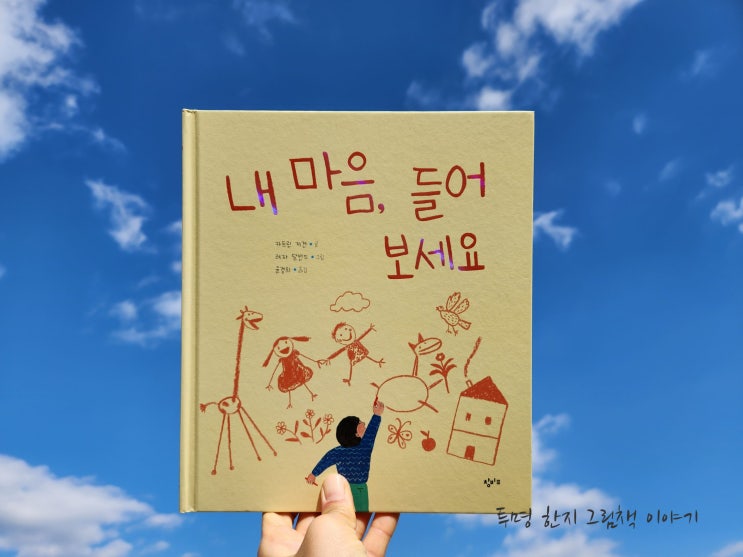 내 마음, 들어
보세요
카트린 지건 • 글
레자 달반드 • 그림
윤경희 • 옮김
창비
투명 한지 그림책 이야기